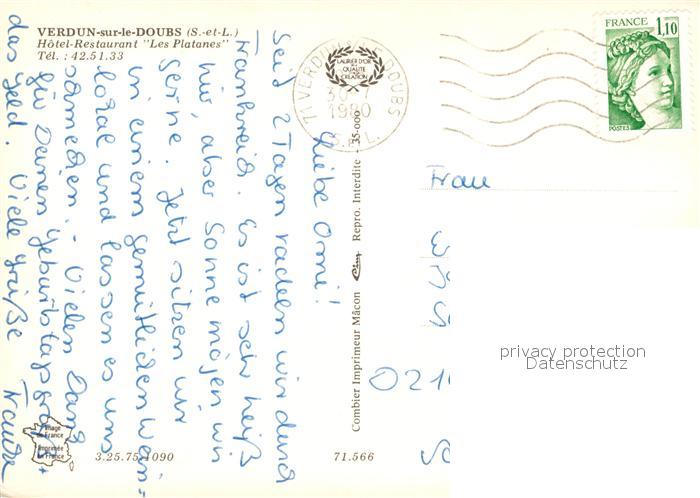 VERDUN-sur-le-DOUBS (S.-et-L.)
Hôtel-Restaurant "Les Platanes"
Tél. : 42.51.33
71 VERDUN S LE DOUBS
LAURIER D'OR
DE
QUALITÉ
CRÉATION
1980
S. & L.
FRANCE
1,10
POSTES
Liebe Omi!
Seit 2 Tagen radeln wir durch
Frankreich. Es ist sehr heiß
hier, aber Sonne mögen wir
gerne. Jetzt sitzen wir
in einem gemütlichen Wein-
lokal und lassen es uns
schmecken. - Vielen Dank
für Deinen Geburtstagsgruß +
das Geld. Viele Grüße
Frau
021
privacy protection
Datenschutz
Combier Imprimeur Mâcon Cim Repro. Interdite - 35-000
Image
de France
Imprimée
en France
3.25.75.1090
71.566